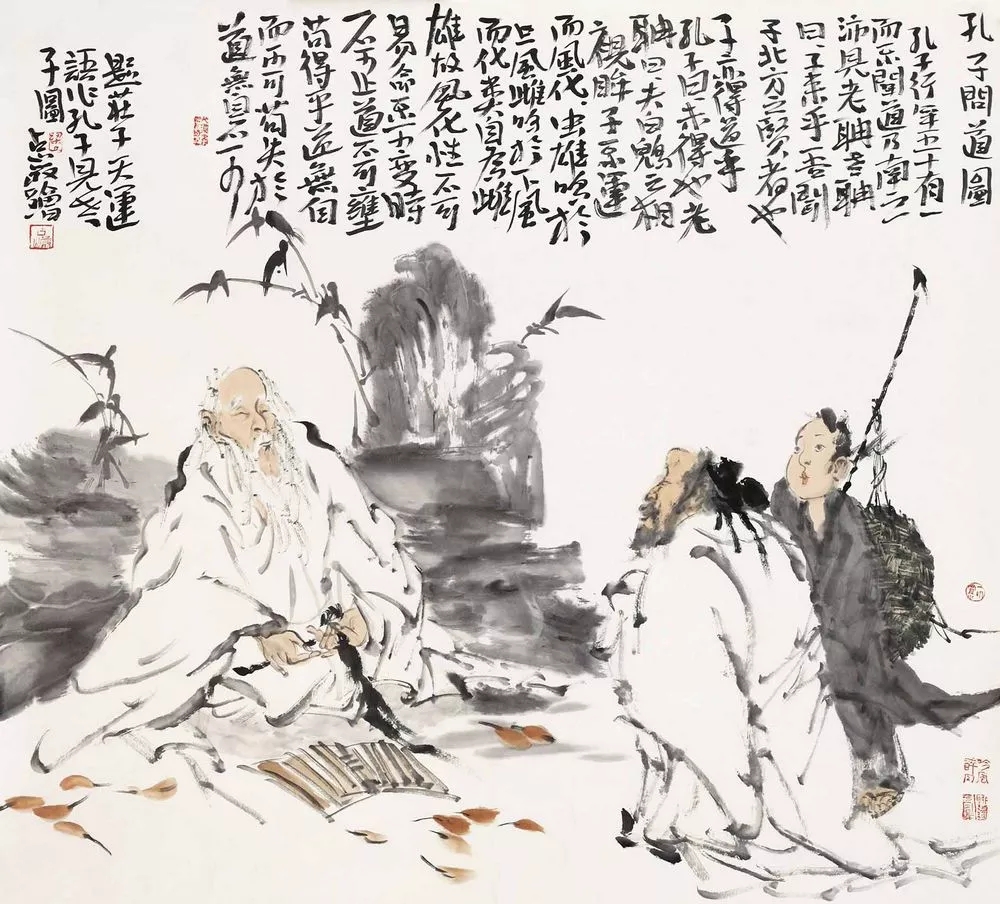 孔子問道圖
孔子行年五十有一
而不聞道乃南之
沛見老聃老聃
曰子來乎吾聞
子北方之賢者也
子亦得道乎
孔子曰未得也老
聃曰夫白鶂之相
視眸子不運
而風化虫雄鳴於
上風雌鳴於下風
而化類自為雌
雄故風化性不可
易命不可變時
不可止道不可壅
苟得乎道無自
而不可苟失於
道無自而可
莊子天運
語作孔子見老
子圖